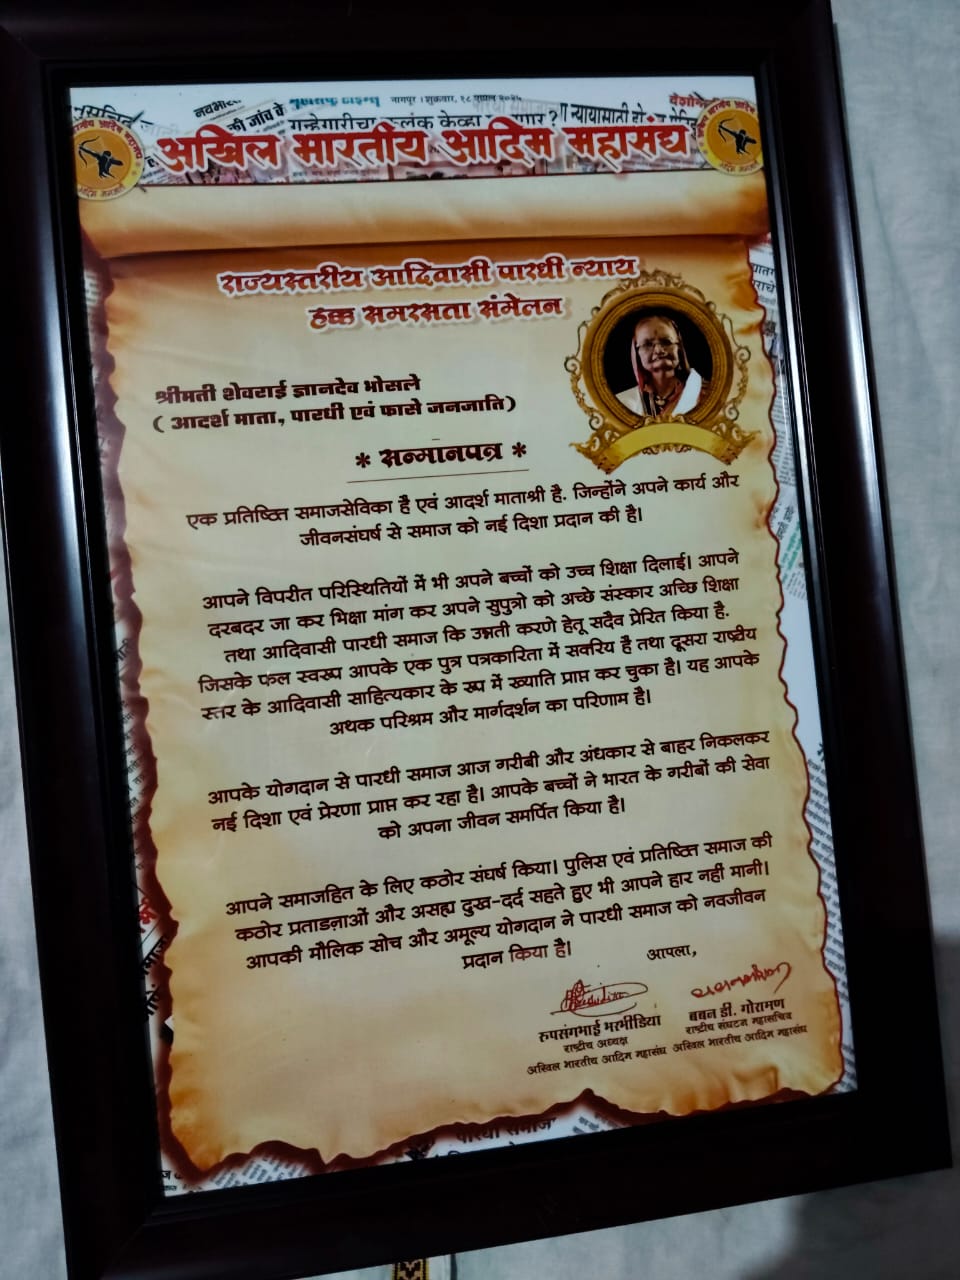 नागपूर । शुक्रवार, १८
की जांच के
न्यायासाठी
गुन्हेगारीचा कलंक केव्हा
अखिल भारतीय आदिम महासंघ
राज्यस्तरीय आदिवासी पारधी न्याय
हक्क समरसता संमेलन
श्रीमती शेवराई ज्ञानदेव भोसले
( आदर्श माता, पारधी एवं फासे जनजाति)
* सन्मानपत्र *
एक प्रतिष्ठित समाजसेविका है एवं आदर्श माताश्री है. जिन्होंने अपने कार्य और
जीवनसंघर्ष से समाज को नई दिशा प्रदान की है।
आपने विपरीत परिस्थितियों में भी अपने बच्चों को उच्च शिक्षा दिलाई। आपने
दरबदर जा कर भिक्षा मांग कर अपने सुपुत्रो को अच्छे संस्कार अच्छि शिक्षा
तथा आदिवासी पारधी समाज कि उन्नती करणे हेतू सदैव प्रेरित किया है.
जिसके फल स्वरूप आपके एक पुत्र पत्रकारिता में सक्रिय है तथा दूसरा राष्ट्रीय
स्तर के आदिवासी साहित्यकार के रूप में ख्याति प्राप्त कर चुका है। यह आपके
अथक परिश्रम और मार्गदर्शन का परिणाम है।
आपके योगदान से पारधी समाज आज गरीबी और अंधकार से बाहर निकलकर
नई दिशा एवं प्रेरणा प्राप्त कर रहा है। आपके बच्चों ने भारत के गरीबों की सेवा
को अपना जीवन समर्पित किया है।
आपने समाजहित के लिए कठोर संघर्ष किया। पुलिस एवं प्रतिष्ठित समाज की
कठोर प्रताडनाओं और असह्य दुख-दर्द सहते हुए भी आपने हार नहीं मानी।
आपकी मौलिक सोच और अमूल्य योगदान ने पारधी समाज को नवजीवन
प्रदान किया है।
आपला,
रुपसंगभाई भरभीडिया
राष्ट्रीय अध्यक्ष
अखिल भारतीय आदिम महासंघ
बबन डी. गोरामण
राष्ट्रीय संघटन महासचिव
अखिल भारतीय आदिम महासंघ